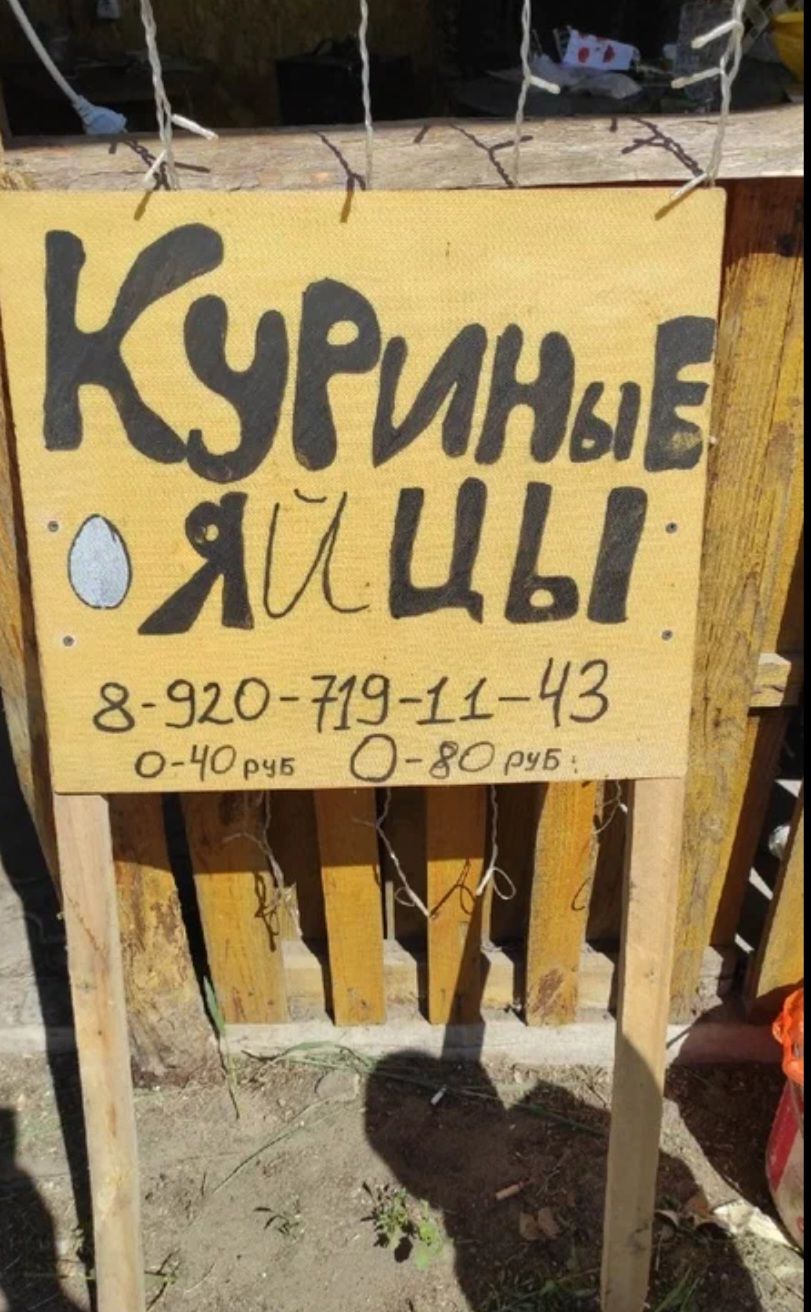 КУРИНЫЕ
ЯЙЦЫ
8-920-719-11-43
0-40 руб 0-80 руб.